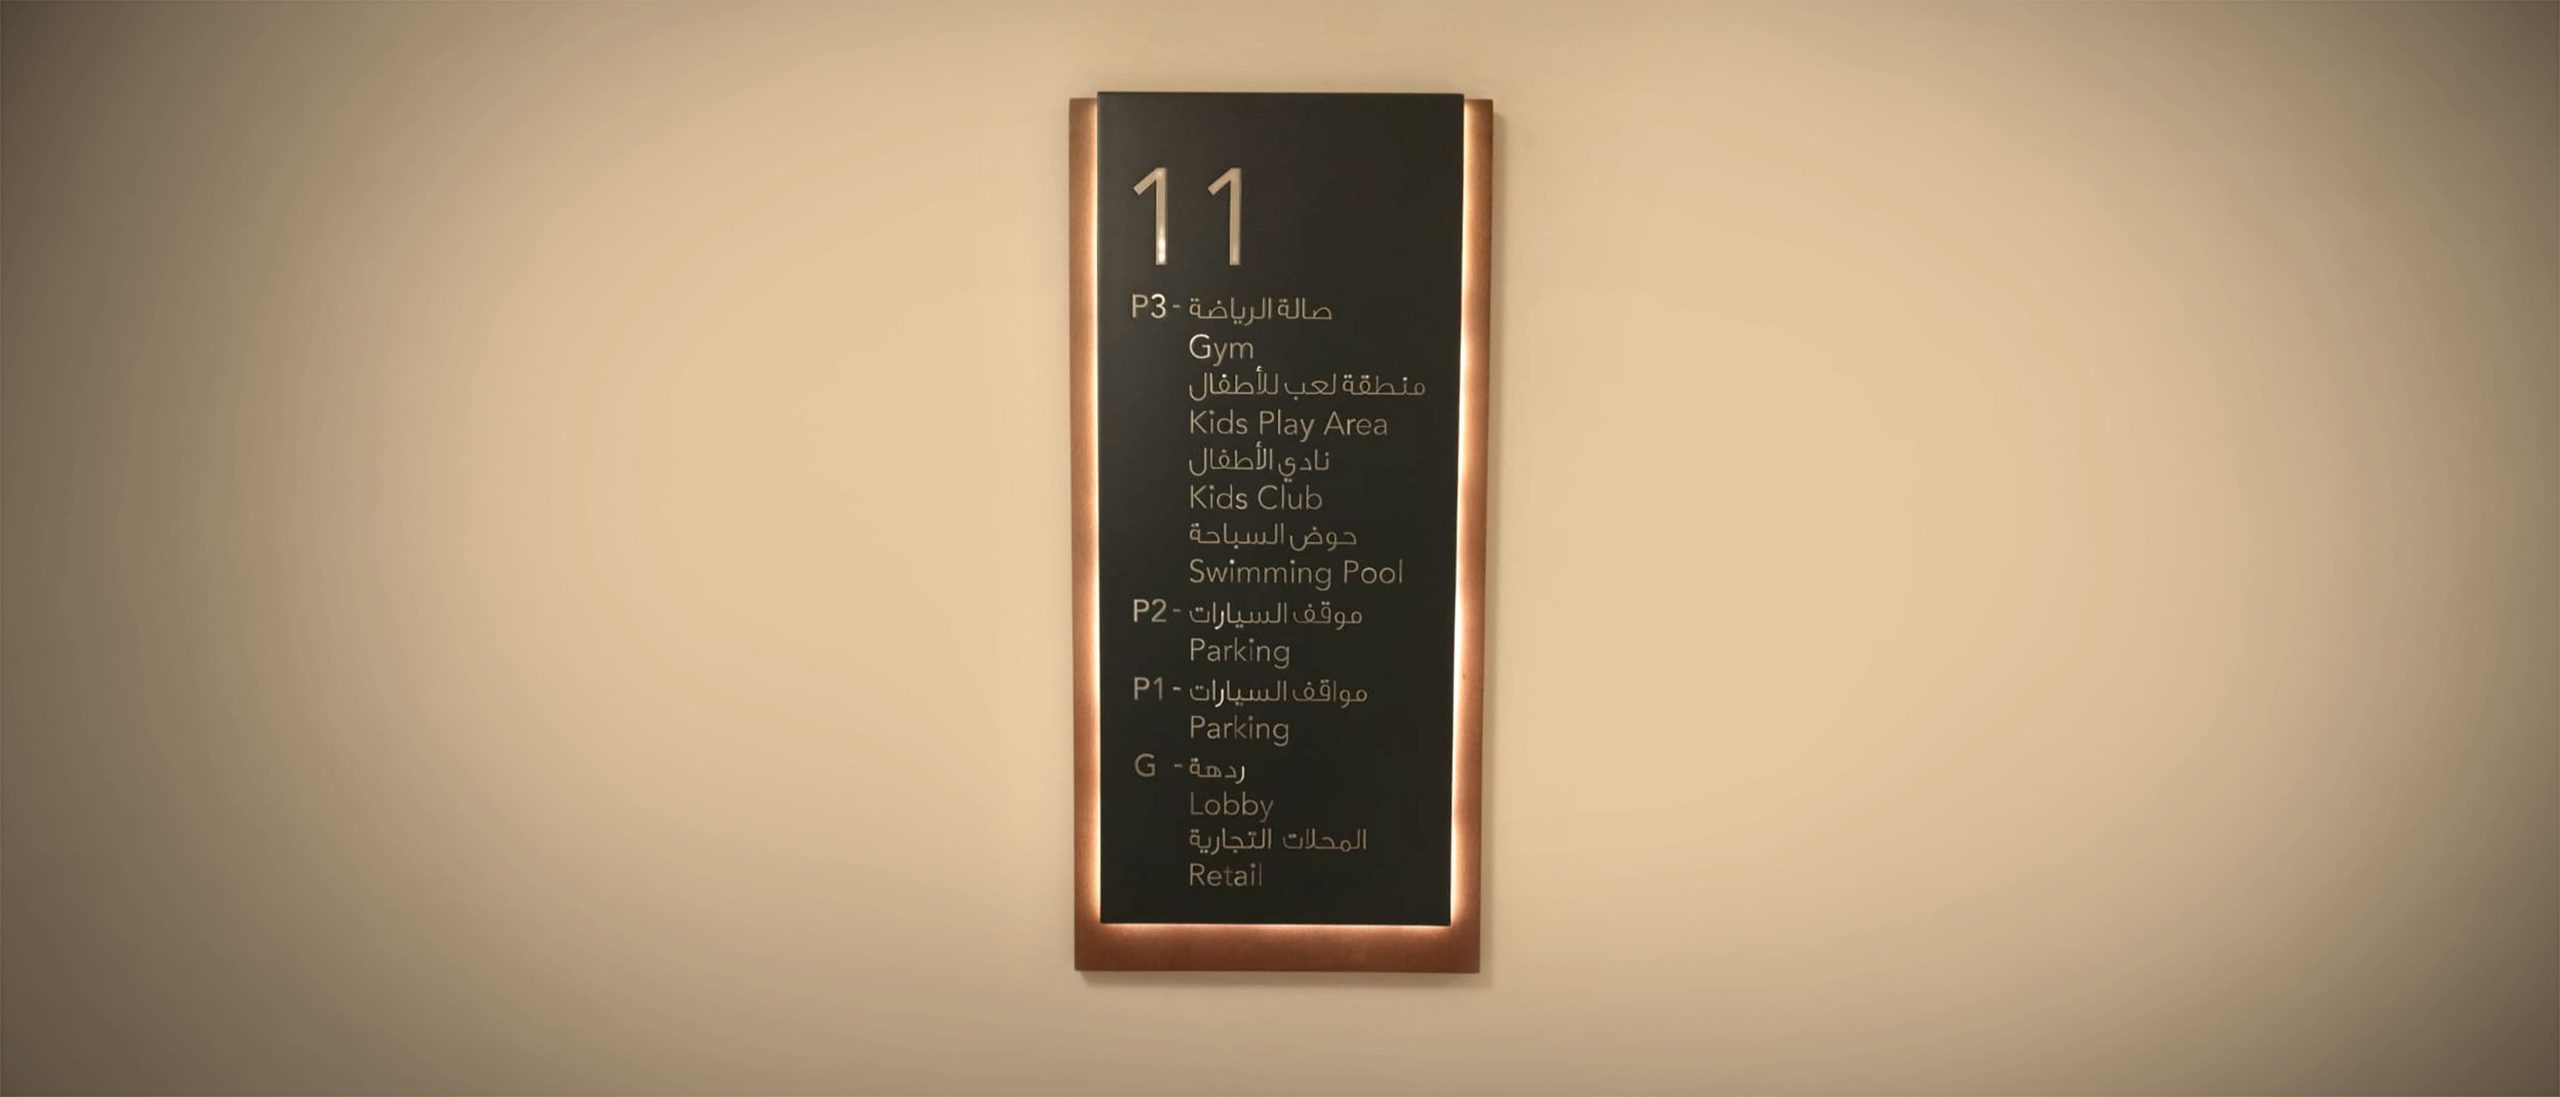 11
P3 - صالة الرياضة
Gym
منطقة لعب للأطفال
Kids Play Area
نادي الأطفال
Kids Club
حوض السباحة
Swimming Pool
P2 - موقف السيارات
Parking
P1 - مواقف السيارات
Parking
G - ردهة
Lobby
المحلات التجارية
Retail